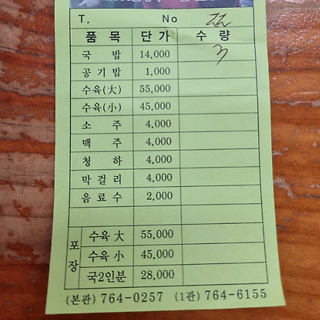 T. No 22
품 목 단 가 수 량
국 밥 14,000 3
공 기 밥 1,000
수육(大) 55,000
수육(小) 45,000
소 주 4,000
맥 주 4,000
청 하 4,000
막 걸 리 4,000
음 료 수 2,000
포장
수육 大 55,000
수육 小 45,000
국2인분 28,000
(본관) 764-0257 (1관) 764-6155